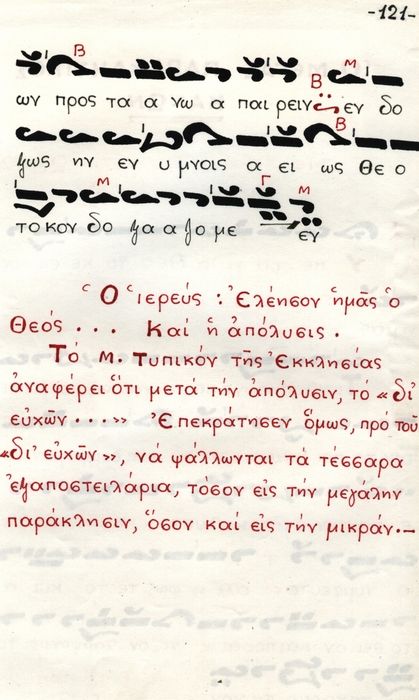 -121-
ων προς τα α νω α παι ρειν εν δο
ξως ην εν υ μνοις α ει ως Θε ο
το κον δο ξα α ζο με εν
Ὁ ἱερεύς : Ἐλέησον ἡμᾶς ὁ
Θεός . . . Καί ἡ ἀπόλυσις .
Τό Μ. Τυπικόν τῆς Ἐκκλησίας
ἀναφέρει ὅτι μετά τήν ἀπόλυσιν, τό «δι'
εὐχῶν ....» Ἐπεκράτησεν ὅμως, πρό τοῦ
«δι' εὐχῶν», νά ψάλλωνται τά τέσσαρα
ἐξαποστειλάρια, τόσον εἰς τήν μεγάλην
παράκλησιν, ὅσον καί εἰς τήν μικράν.-